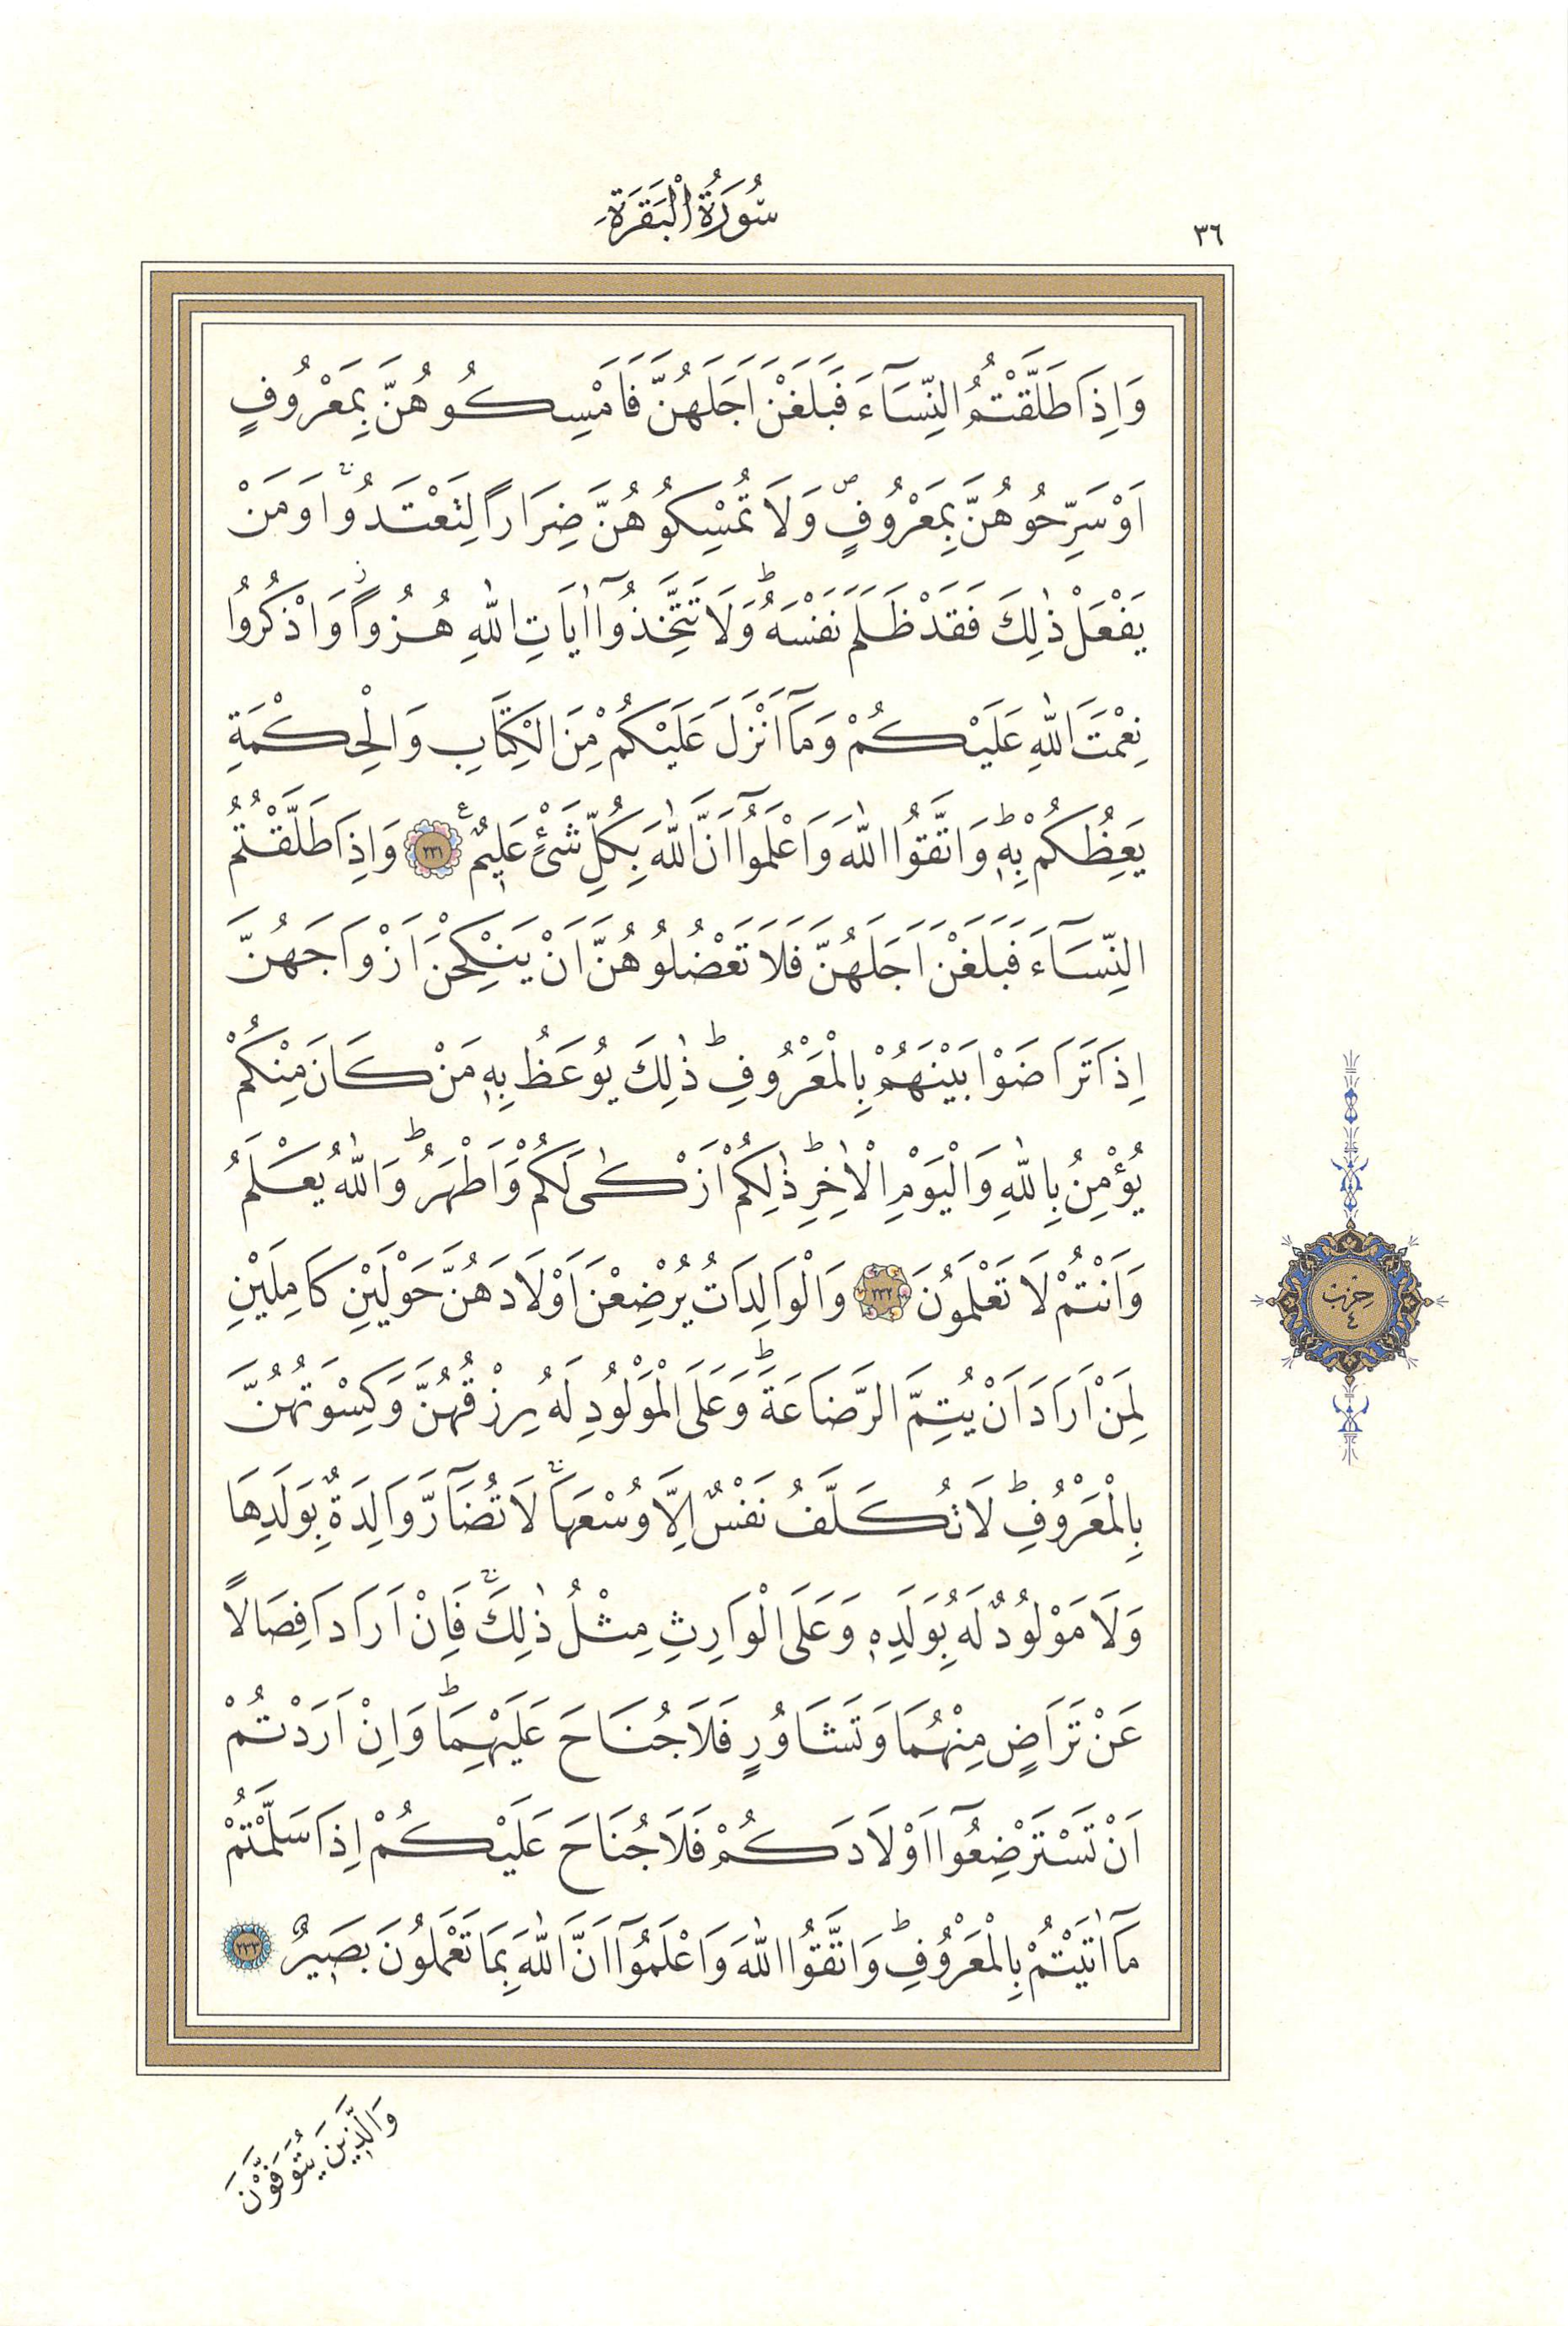 ٣٦
سُورَةُ الْبَقَرَةِ
وَاِذَا طَلَّقْتُمُ النِّسَٓاءَ فَبَلَغْنَ اَجَلَهُنَّ فَاَمْسِكُوهُنَّ بِمَعْرُوفٍ
اَوْ سَرِّحُوهُنَّ بِمَعْرُوفٍۖ وَلَا تُمْسِكُوهُنَّ ضِرَاراً لِتَعْتَدُواۚ وَمَنْ
يَفْعَلْ ذٰلِكَ فَقَدْ ظَلَمَ نَفْسَهُۜ وَلَا تَتَّخِذُٓوا اٰيَاتِ اللّٰهِ هُزُواًۘ وَاذْكُرُوا
نِعْمَتَ اللّٰهِ عَلَيْكُمْ وَمَٓا اَنْزَلَ عَلَيْكُمْ مِنَ الْكِتَابِ وَالْحِكْمَةِ
يَعِظُكُمْ بِهٖۜ وَاتَّقُوا اللّٰهَ وَاعْلَمُٓوا اَنَّ اللّٰهَ بِكُلِّ شَيْءٍ عَلٖيمٌࣖ ٢٣١ وَاِذَا طَلَّقْتُمُ
النِّسَٓاءَ فَبَلَغْنَ اَجَلَهُنَّ فَلَا تَعْضُلُوهُنَّ اَنْ يَنْكِحْنَ اَزْوَاجَهُنَّ
اِذَا تَرَاضَوْا بَيْنَهُمْ بِالْمَعْرُوفِۜ ذٰلِكَ يُوعَظُ بِهٖ مَنْ كَانَ مِنْكُمْ
يُؤْمِنُ بِاللّٰهِ وَالْيَوْمِ الْاٰخِرِۜ ذٰلِكُمْ اَزْكٰى لَكُمْ وَاَطْهَرُۜ وَاللّٰهُ يَعْلَمُ
وَاَنْتُمْ لَا تَعْلَمُونَ ٢٣٢ وَالْوَالِدَاتُ يُرْضِعْنَ اَوْلَادَهُنَّ حَوْلَيْنِ كَامِلَيْنِ
حزب ٤
لِمَنْ اَرَادَ اَنْ يُتِمَّ الرَّضَاعَةَۜ وَعَلَى الْمَوْلُودِ لَهُ رِزْقُهُنَّ وَكِسْوَتُهُنَّ
بِالْمَعْرُوفِۜ لَا تُكَلَّفُ نَفْسٌ اِلَّا وُسْعَهَاۚ لَا تُضَٓارَّ وَالِدَةٌ بِوَلَدِهَا
وَلَا مَوْلُودٌ لَهُ بِوَلَدِهٖ وَعَلَى الْوَارِثِ مِثْلُ ذٰلِكَۚ فَاِنْ اَرَادَا فِصَالاً
عَنْ تَرَاضٍ مِنْهُمَا وَتَشَاوُرٍ فَلَا جُنَاحَ عَلَيْهِمَاۜ وَاِنْ اَرَدْتُمْ
اَنْ تَسْتَرْضِعُٓوا اَوْلَادَكُمْ فَلَا جُنَاحَ عَلَيْكُمْ اِذَا سَلَّمْتُمْ
مَٓا اٰتَيْتُمْ بِالْمَعْرُوفِۜ وَاتَّقُوا اللّٰهَ وَاعْلَمُٓوا اَنَّ اللّٰهَ بِمَا تَعْمَلُونَ بَصٖيرٌ ٢٣٣
وَالَّذٖينَ يُتَوَفَّوْنَ